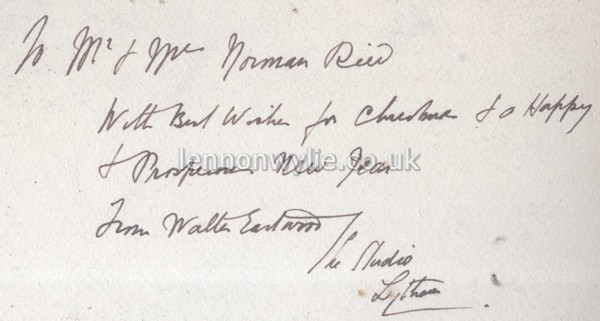 To Mr & Mrs Norman Reid
With Best Wishes for Christmas & a Happy
& Prosperous New Year
lennonwylie.co.uk
From Walter Eastwood
The Studio
Lytham